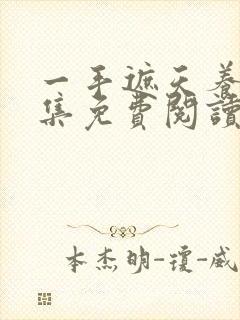 一手遮天养
集免費閱讀
本杰明-瓊-威